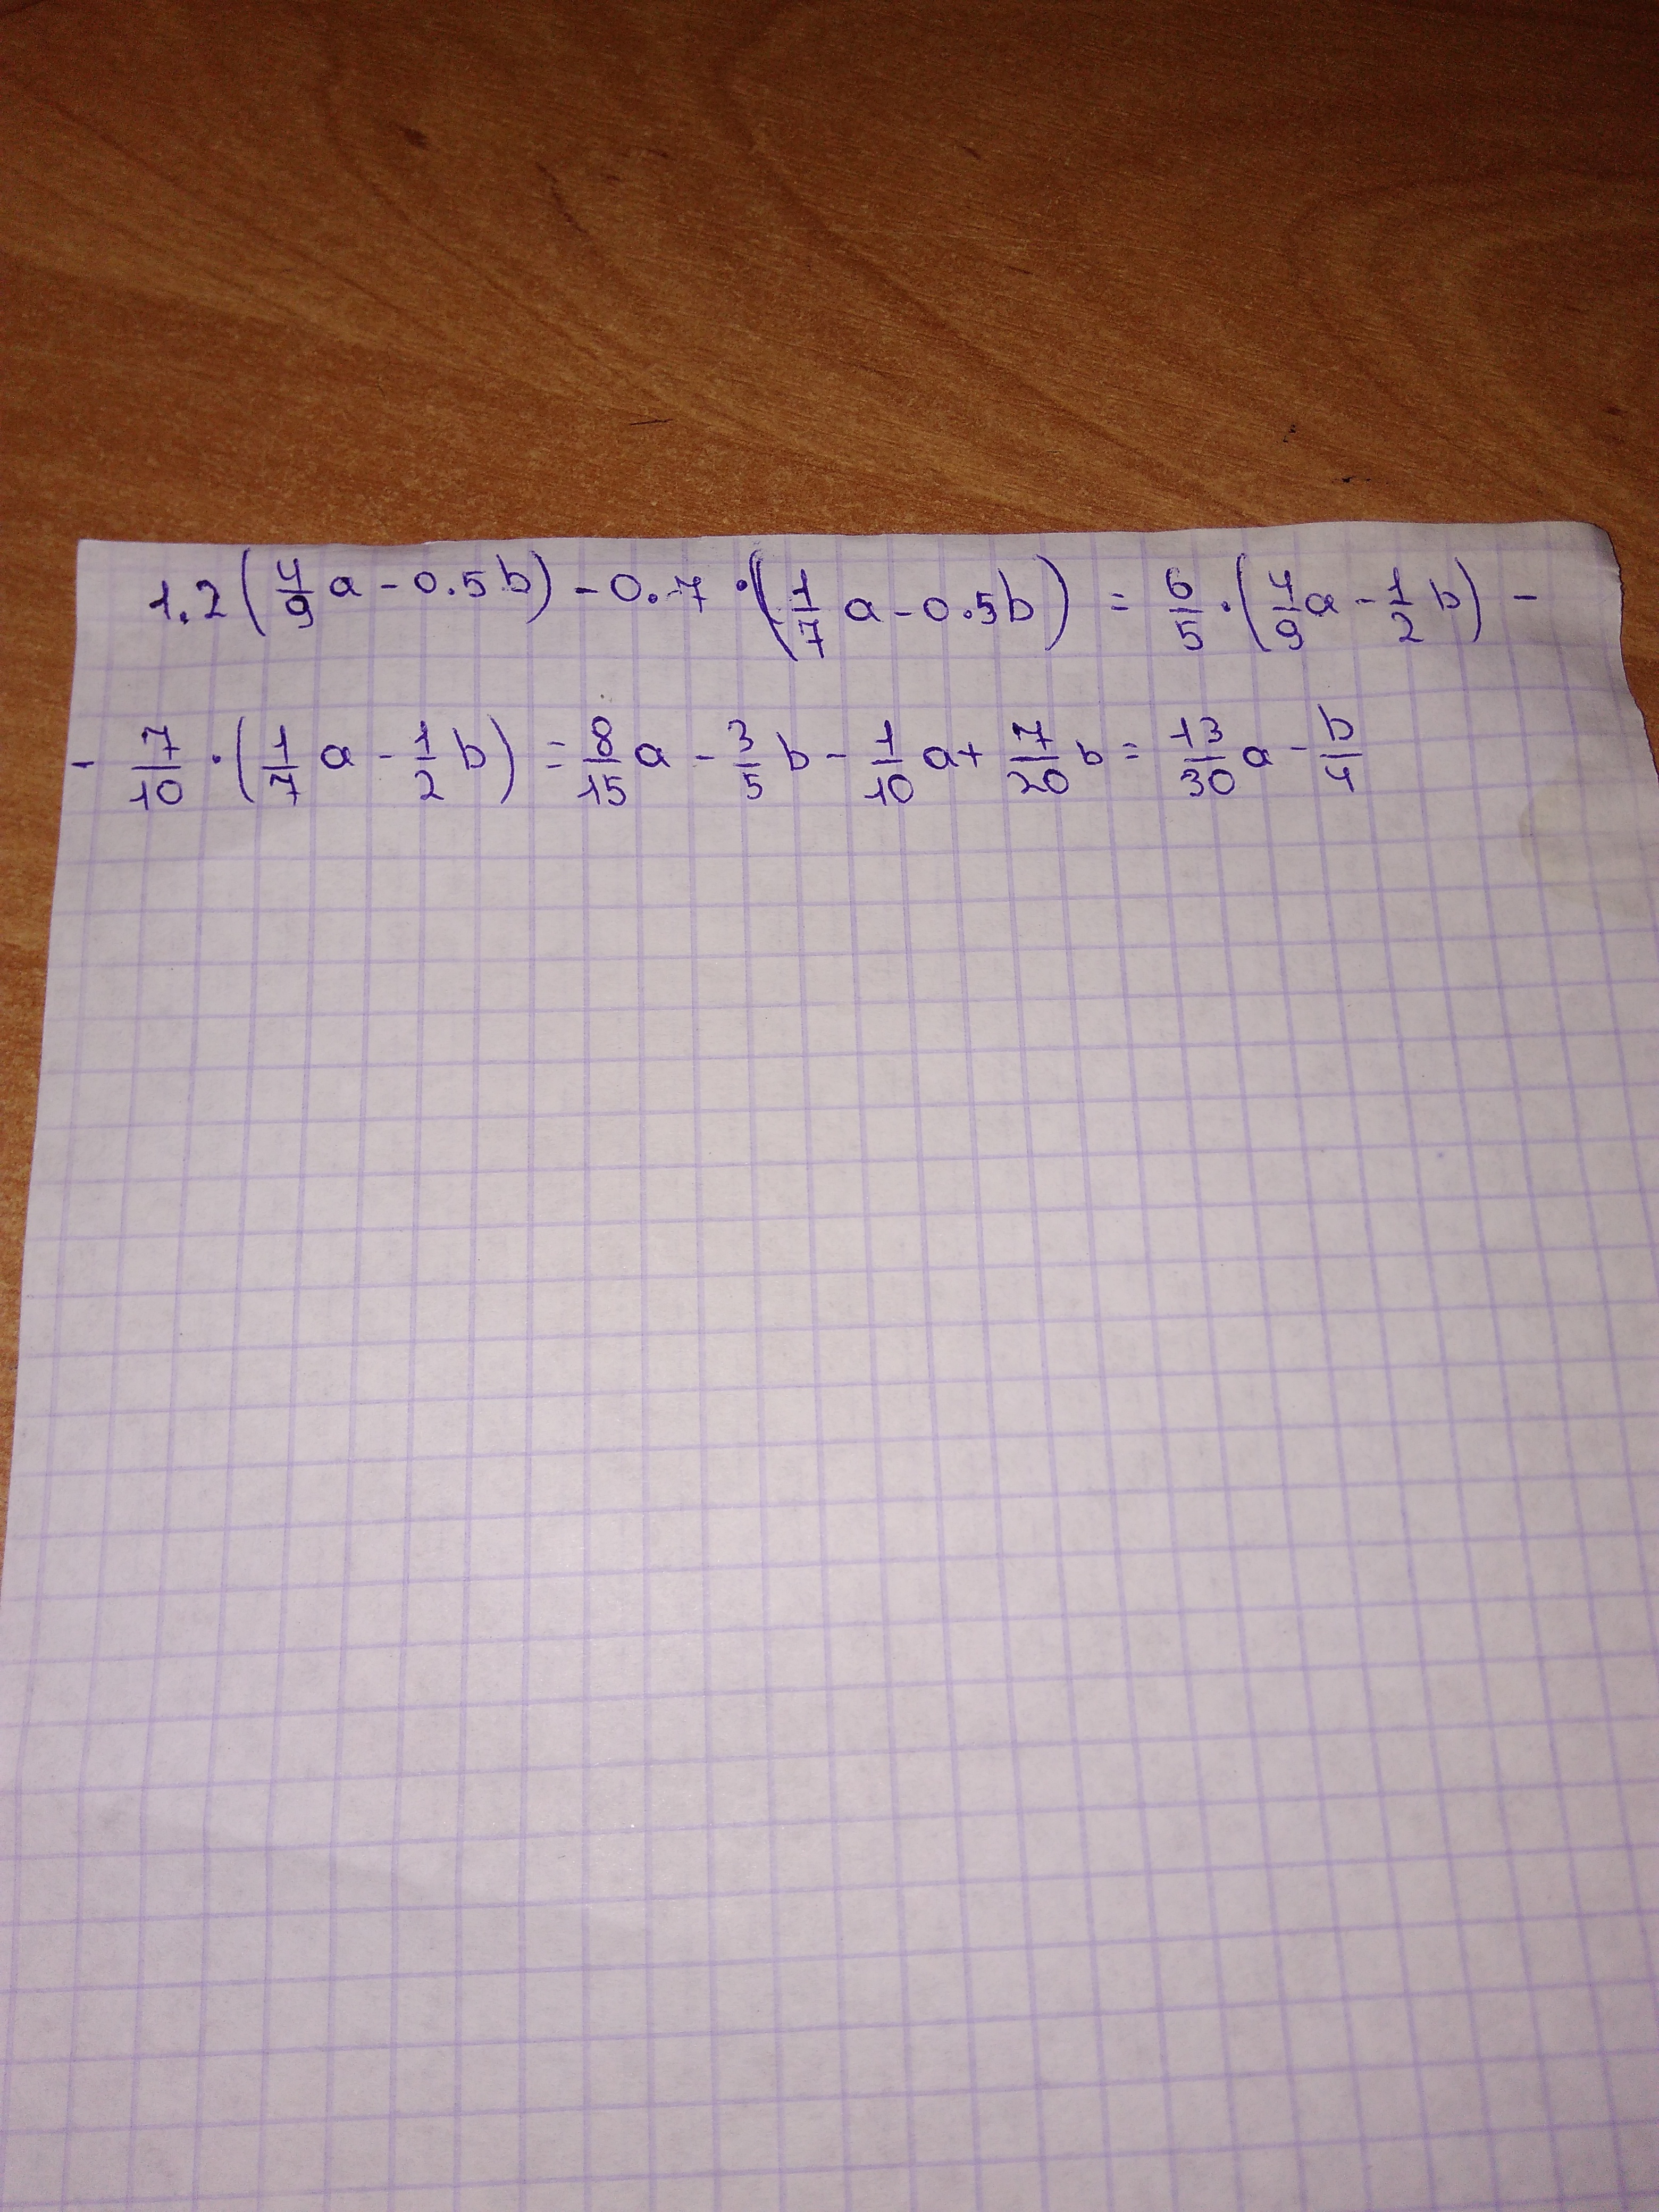 1.2(4/9 a - 0.5b) - 0.7 · (1/7 a - 0.5b) = 6/5 · (4/9 a - 1/2 b) -
- 7/10 · (1/7 a - 1/2 b) = 8/15 a - 3/5 b - 1/10 a + 7/20 b = 13/30 a - b/4